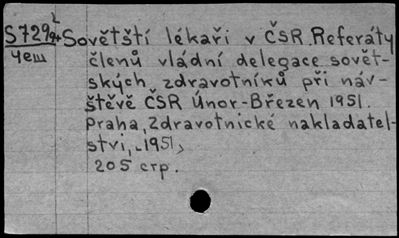 S729
Sovětští lékaři v ČSR. Referáty
Чеш
členů vládní delegace sovět-
ských zdravotníků při náv-
štěvě ČSR Únor-Březen 1951.
Praha, Zdravotnické nakladatel-
ství, 1951,
205 стр.